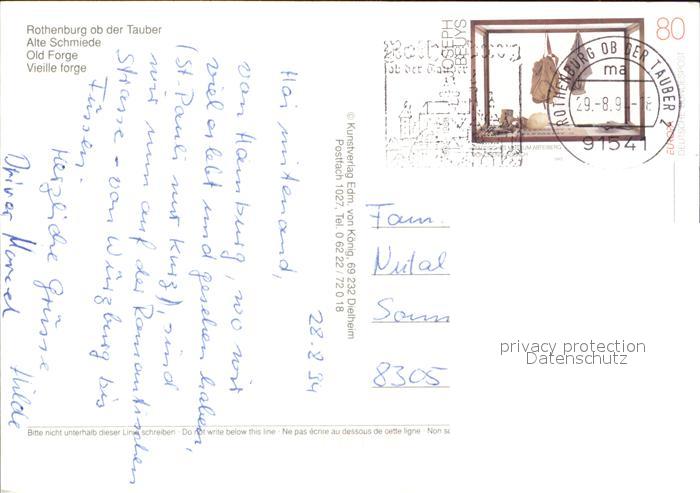 Rothenburg ob der Tauber
Alte Schmiede
Old Forge
Vieille forge
28.8.94
Hoi mitenand,
von Hamburg, wo wir
viel erlebt und gesehen haben,
(St. Pauli mit Kurz), sind
wir nun auf der Romantischen
Strasse - von Würzburg bis
Füssen.
Herzliche Grüsse
Marcel Hilde
© Kunstverlag Edm. von König, 69 232 Dielheim
Postfach 1027, Tel. 0 62 22 / 72 0 18
JOSEPH
BEUYS
80
EUROPA
DEUTSCHE BUNDESPOST
ROTHENBURG OB DER TAUBER
ma
29.-8.9
91541
Fam.
Nutal
8305
privacy protection
Datenschutz
Bitte nicht unterhalb dieser Linie schreiben · Do not write below this line · Ne pas écrire au dessous de cette ligne · Non s